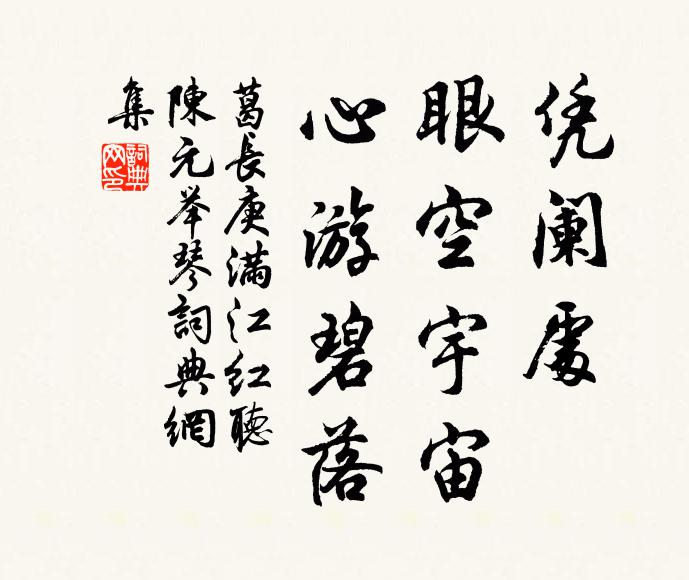 凭阑處
眼空宇宙
心游碧落
葛長庚满江红聽
陳元举琴詞典網
集
詞典网印